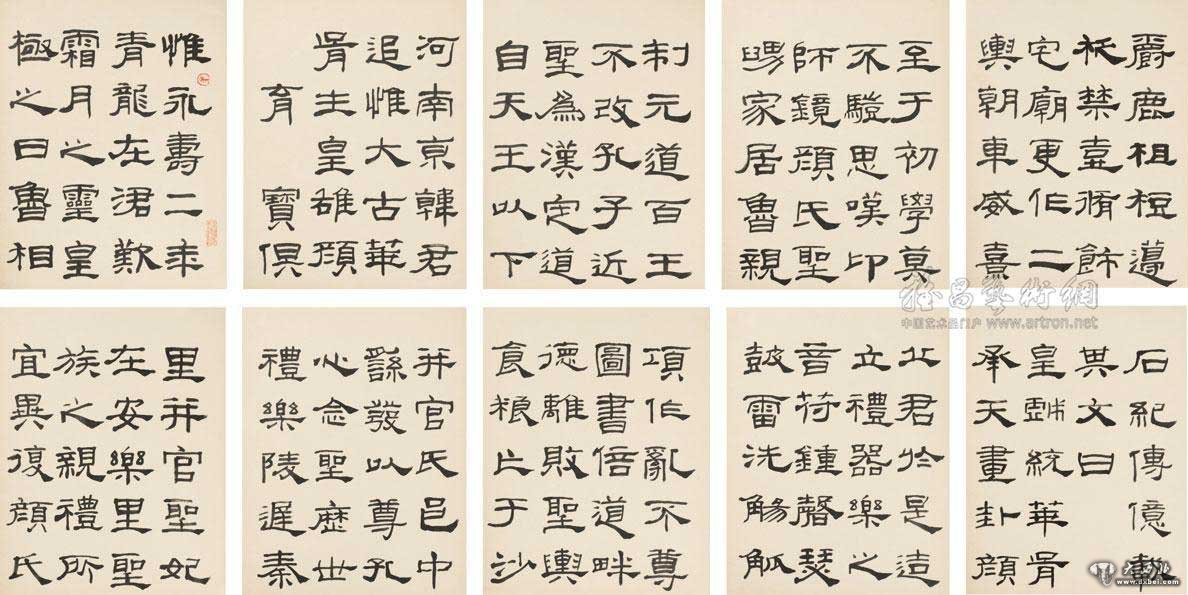 惟永壽二年
青龍在涒歎
霜月之靈皇
極之日魯相
河南京韓君
追惟大古華
胥生皇雄顏
育寶俱
制元道百王
不改孔子近
聖為漢定道
自天王以下
至于初學莫
不驗思嘆卬
師鏡顏氏聖
舅家居魯親
爵鹿柤梪籩
柉禁壺脩飾
宅廟更作二
輿朝車威熹
里并官聖妃
在安樂里聖
族之親禮所
宜異復顏氏
并官氏邑中
繇發以尊孔
心念聖歷世
禮樂陵遲秦
項作亂不尊
圖書倍道畔
德離敗聖輿
食粮亡于沙
丘君於是造
立禮器樂之
音苻鍾磬瑟
鼓雷洗觴觚
石紀傳億載
其文曰
皇戲統華胥
承天畫卦顏
雅昌藝術網
中国艺术品门户 www.artron.net
www.dxbei.com